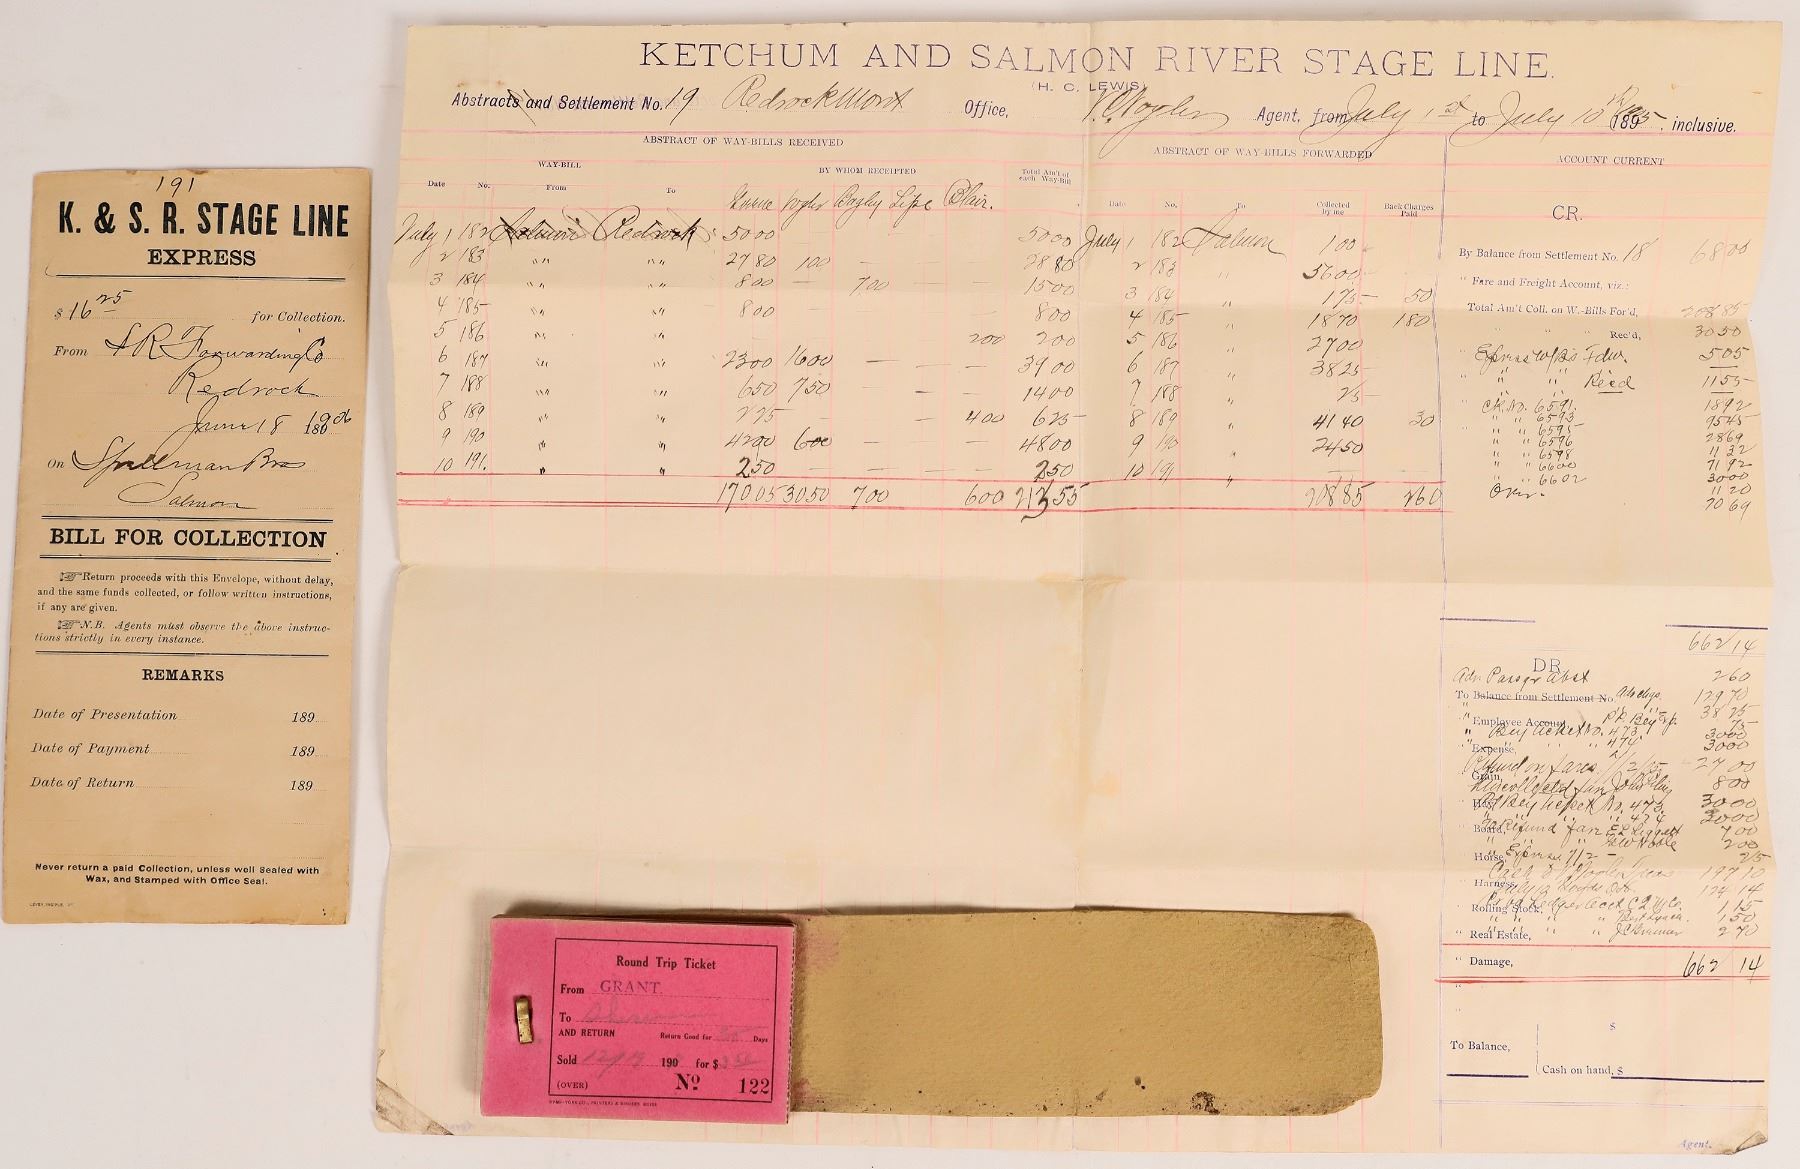 191
K. & S. R. STAGE LINE
EXPRESS
$ 16 25 for Collection.
From S R Forwarding Co
Redrock
June 18 1906
On Spellman Bros
Salmon
BILL FOR COLLECTION
Return proceeds with this Envelope, without delay,
and the same funds collected, or follow written instructions,
if any are given.
N.B. Agents must observe the above instruc-
tions strictly in every instance.
REMARKS
Date of Presentation 189
Date of Payment 189
Date of Return 189
Never return a paid Collection, unless well Sealed with
Wax, and Stamped with Office Seal.
KETCHUM AND SALMON RIVER STAGE LINE.
(H. C. LEWIS)
Abstracts and Settlement No. 19 Redrock Mont Office, Agent, from July 1st to July 10th 189 inclusive.
ABSTRACT OF WAY-BILLS RECEIVED
WAY-BILL
BY WHOM RECEIPTED
Date No. From To Vogler Bagley Lipe Blair. Total Am't of each Way-Bill
July 1 182 Salmon Redrock 50 00 50 00
2 183 " " " " 27 80 1 00 — — 28 80
3 184 " " " " 8 00 — 7 00 — — 15 00
4 185 " " " " 8 00 8 00
5 186 " " " " 2 00 2 00
6 187 " " " " 23 00 16 00 — — — 39 00
7 188 " " " " 6 50 7 50 — — 14 00
8 189 " " " " 2 25 — — 4 00 6 25
9 190 " " " " 42 00 6 00 — — — 48 00
10 191. " " 2 50 — — — — 2 50
170 05 30 50 7 00 6 00 213 55
ABSTRACT OF WAY-BILLS FORWARDED
Date No. To Collected by me Back Charges Paid
July 1 182 Salmon 1 00
2 183 " 56 00
3 184 " 1 75 50
4 185 " 18 70 1 80
5 186 " 27 00
6 187 " 38 25
7 188 " 25
8 189 " 41 40 30
9 190 " 24 50
10 191 "
208 85 2 60
ACCOUNT CURRENT
CR.
By Balance from Settlement No. 18 68 00
" Fare and Freight Account, viz.:
Total Am't Coll. on W.-Bills For'd, 208 85
" " " Rec'd, 30 50
Express W/Bs Fdw. 5 05
" " " Recd 11 55
Ck. No. 6591 18 92
" " 6593 95 45
" " 6595 28 69
" " 6596 11 32
" " 6598 71 92
" " 6600 30 00
" " 6602 11 20
Over. 70 69
662 14
DR.
2 60
To Balance from Settlement No. 129 70
" Employee Account, 38 25
" No. 473 30 00
" Expense, " " 474 30 00
Refund on fares 27 00
Grain,
Uncollected fare 8 00
Hay, No. 473 30 00
" " 474 30 00
Board, Refund fare 7 00
2 00
Horse, Express 7/2 25
Cash 197 10
Harness, July 12 124 14
Rolling Stock, 1 15
1 50
" Real Estate, " " 2 70
" Damage, 662 14
"
"
$
To Balance,
Cash on hand, $
Agent.
Round Trip Ticket
From GRANT.
To
AND RETURN Return Good for Days
Sold 190 for $
(OVER) No 122